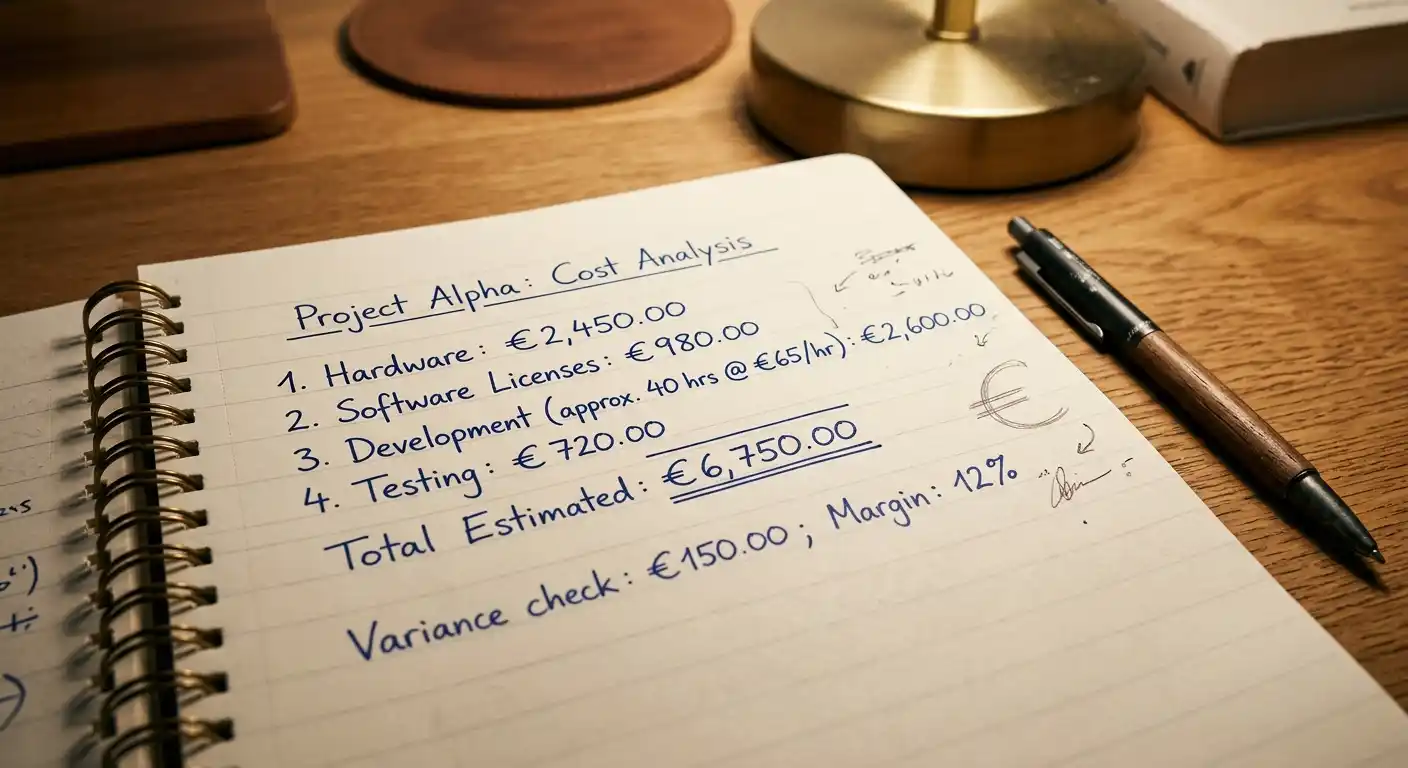 Project Alpha: Cost Analysis
1. Hardware: €2,450.00
2. Software Licenses: €980.00
3. Development (approx. 40 hrs @ €65/hr): €2,600.00
4. Testing: €720.00
Total Estimated: €6,750.00
Variance check: €150.00 ; Margin: 12%
€